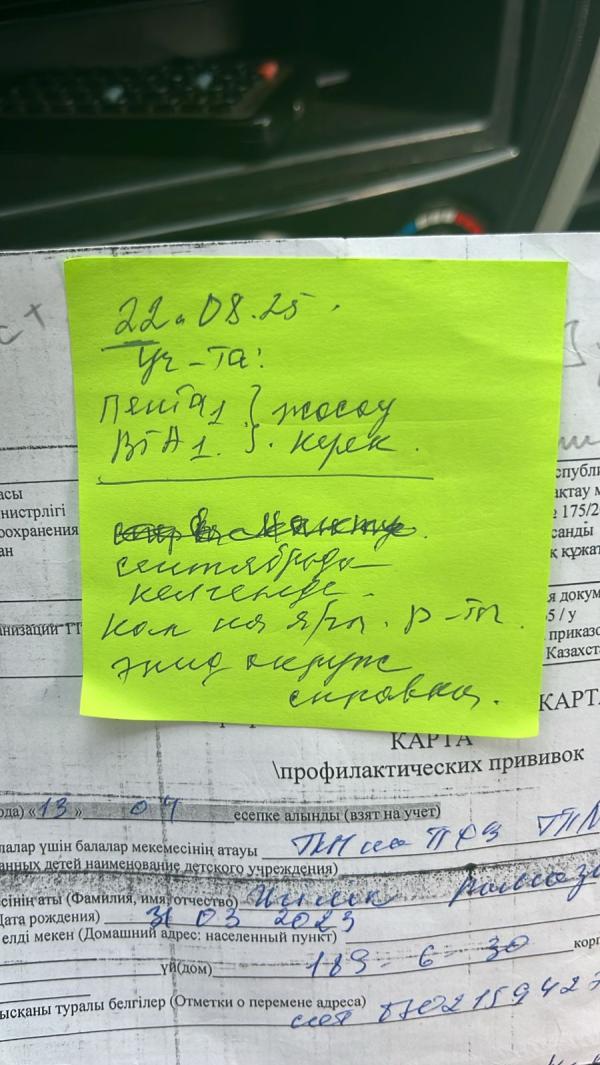 22.08.25.
Уч-та:
Пента1 } жасау
ВГА1. } керек.
сентябрьде
келгенде.
кал на я/гл. р-т.
эпид окруж
справка.
асы
нистрлігі
оохранения
ан
анизации
спубли
ақтау м
175/2
санды
қ құжат
я докум
5 / у
приказо
Казахста
КАРТА
КАРТА
\профилактических прививок
ода) «13» 04 есепке алынды (взят на учет)
лалар үшін балалар мекемесінің атауы ПКН на ПХВ
анных детей наименование детского учреждения)
сінің аты (Фамилия, имя, отчество)
Дата рождения) 31 03 2023
елді мекен (Домашний адрес: населенный пункт)
үй(дом) 189 - 6 - 30 корп
ысқаны туралы белгілер (Отметки о перемене адреса)
сот 8702159427